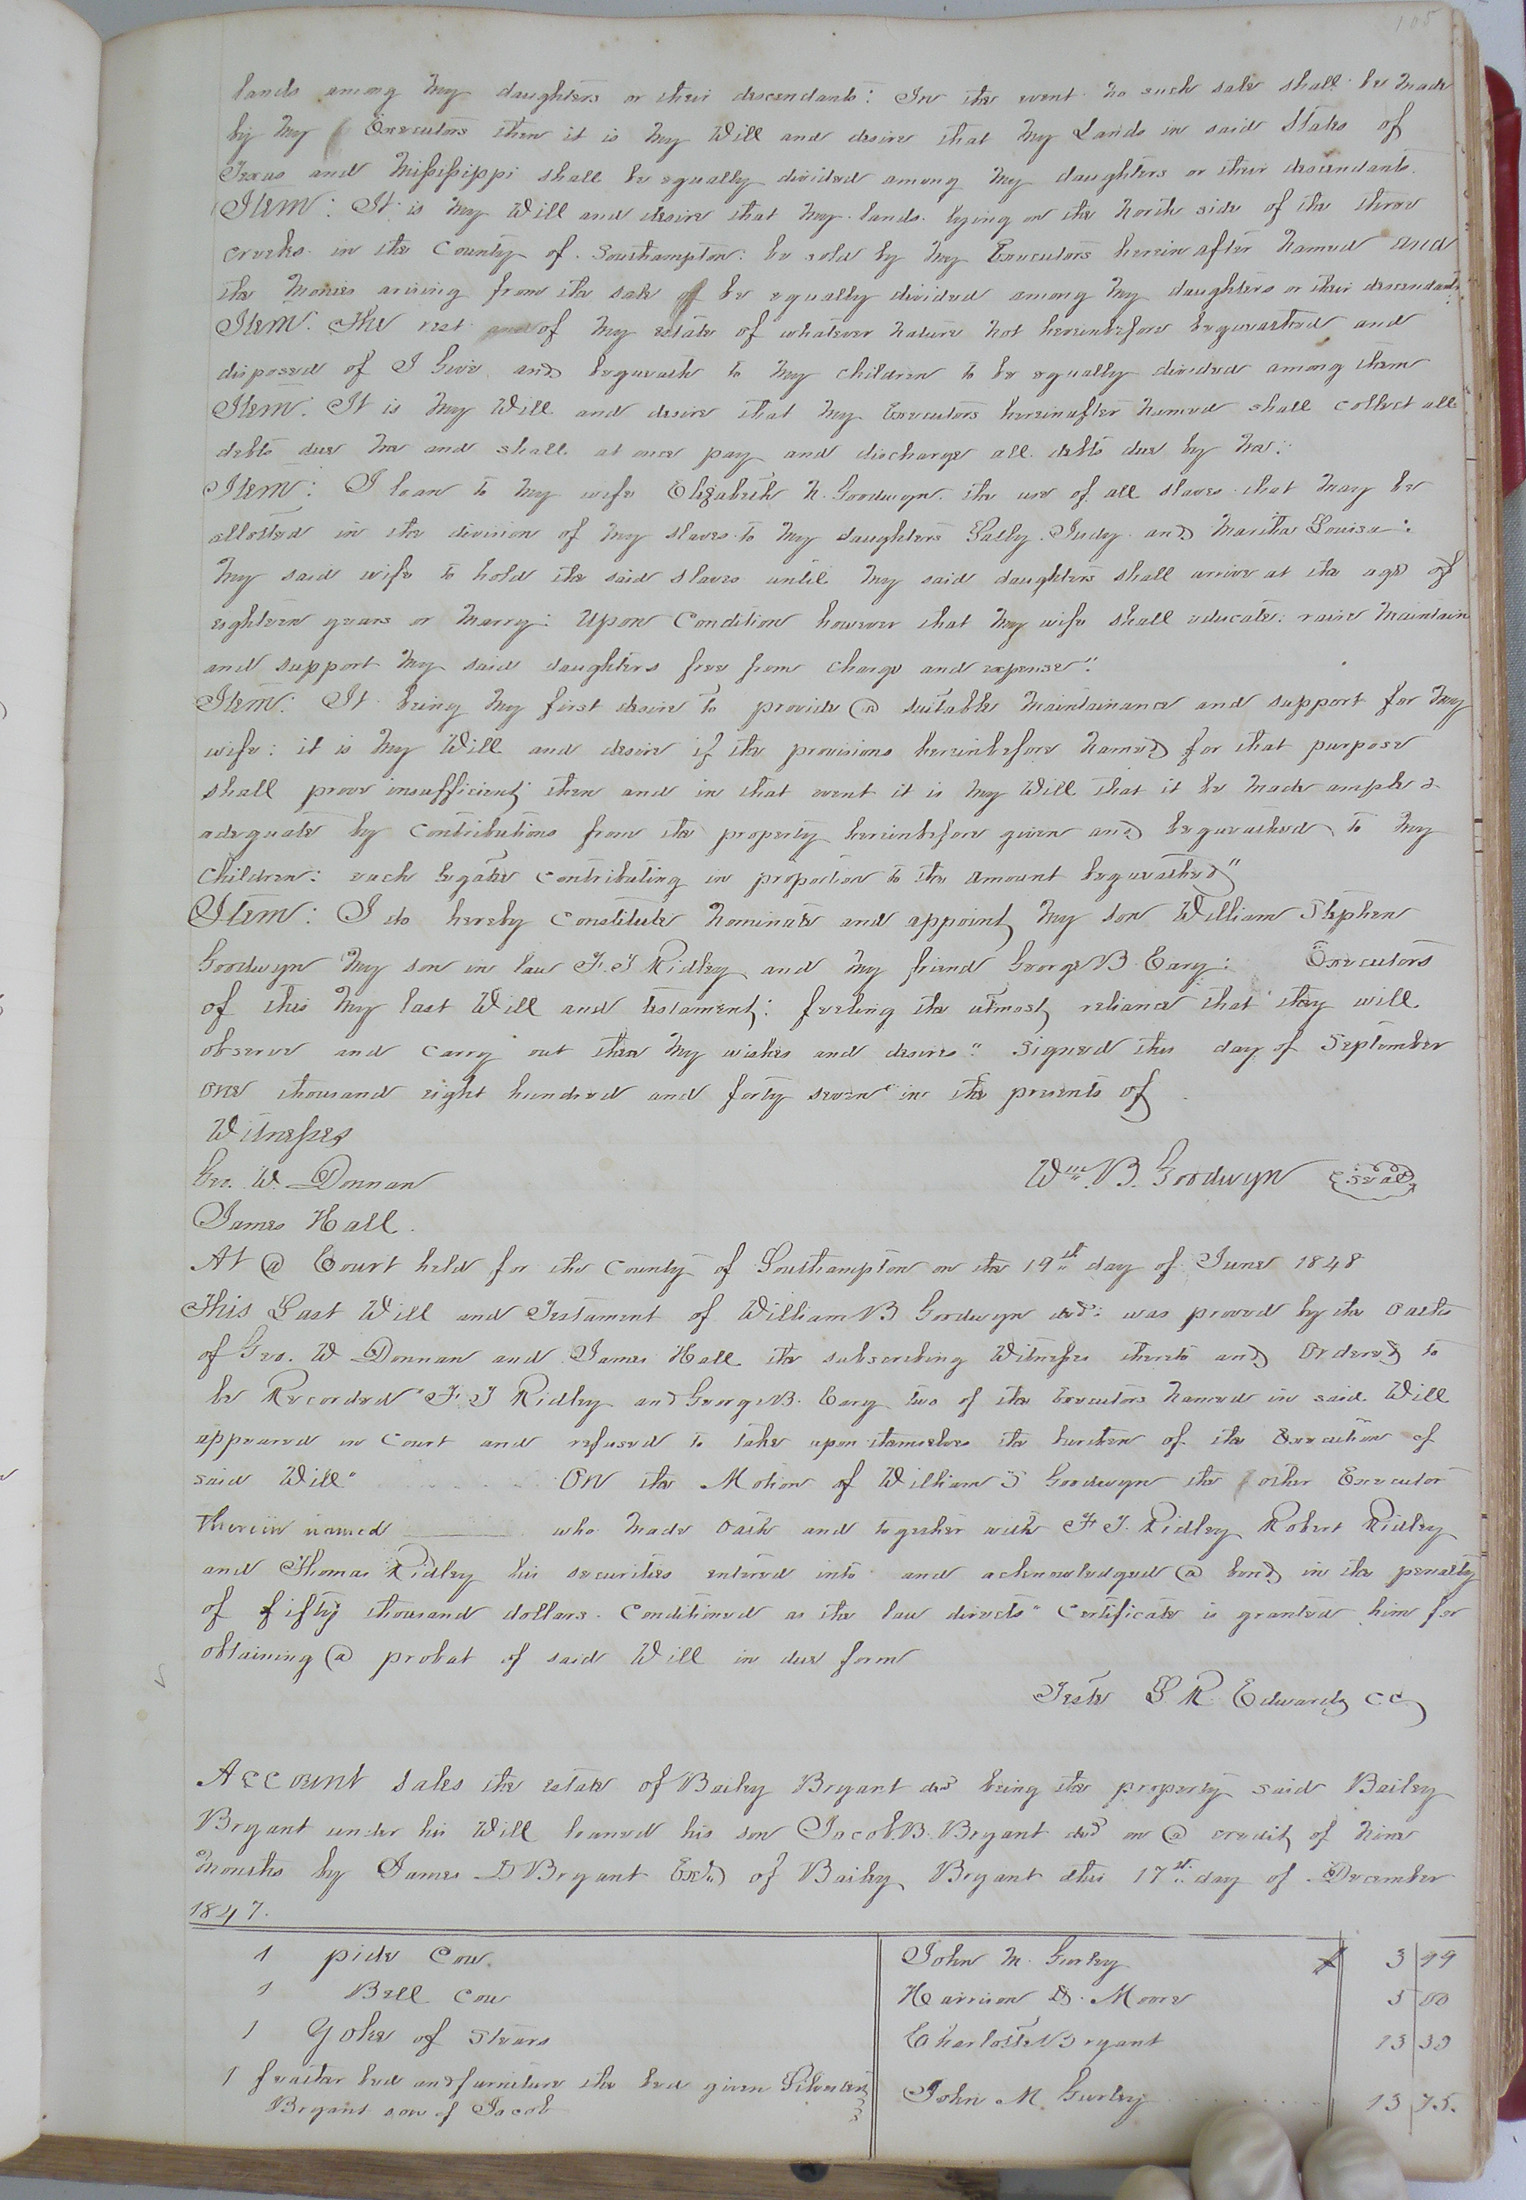 105
lands among my daughters or their descendants: In the event no such sale shall be made
by my Executors then it is my Will and desire that my Lands in said States of
Texas and Missippippi shall be equally divided among my daughters or their descendants.
Item: It is my Will and desire that my lands lying on the north side of the three
creeks in the County of Southampton: be sold by my Executors herein after named and
the monies arising from the sale of be equally divided among my daughters or their descendants:
Item. The rest of my estate of whatever nature not hereinbefore bequeathed and
disposed of I Give and bequeath to my children to be equally divided among them
Item. It is my Will and desire that my Executors hereinafter named shall collect all
debts due me and shall at once pay and discharge all debts due by me:
Item: I loan to my wife Elizabeth N. Goodwyn. the use of all slaves that may be
allotted in the division of my slaves to my daughters Sally. Indy and Martha Louisa:
my said wife to hold the said slaves until my said daughters shall arrive at the age of
eighteen years or marry: Upon Condition however that my wife shall educate: raise maintain
and support my said daughters free from charge and expense".
Item: It being my first desire to provide a suitable maintainance and support for my
wife: it is my Will and desire if the provisions hereinbefore named for that purpose
shall prove insufficient; then and in that event it is my Will that it be made ample &
adequate by contributions from the property hereinbefore given and bequeathed to my
Children: each legatee contributing in proportion to the amount bequeathed"
Item: I do hereby Constitute nominate and appoint my son William Stephen
Goodwyn my son in law F. T Ridley and my friend George B. Cary: Executors
of this my last Will and testament: feeling the utmost reliance that they will
observe and carry out these my wishes and desires" Signed this day of September
one thousand eight hundred and forty seven" in the presents of
Witnesses
Geo. W. Donnan Wm. B. Goodwyn Seal
James Hall.
At a Court held for the County of Southampton on the 19th day of June 1848
This Last Will and Testament of William B Goodwyn decd: was proved by the oaths
of Geo. W Donnan and James Hall the subscribing Witnesses thereto and Ordered to
be Recorded" F. T Ridley and George B. Cary two of the Executors named in said Will
appeared in Court and refused to take upon themselves the burthen of the Execution of
said Will" On the Motion of William S Goodwyn the other Executor
therein named who made oath and together with F T. Ridley Robert Ridley
and Thomas Ridley his securities entered into and acknowledged a bond in the penalty
of fifty thousand dollars. Conditioned as the law directs" Certificate is granted him for
obtaining a probat of said Will in due form
Teste L. R. Edwards CC
Account sales the estate of Bailey Bryant decd being the property said Bailey
Bryant under his Will loaned his son Jacob. B. Bryant decd on a credit of nine
months by James D Bryant Exr. of Bailey Bryant this 17th day of December
1847.
1 pide Cow. John M. Gurley 3 99
1 Bell Cow Harrison D. Moore 5 00
1 Yoke of Stears Charlotte Bryant 13 30
1 feather bed and furniture the bed given
Bryant son of Jacob John M. Gurley 13 75.